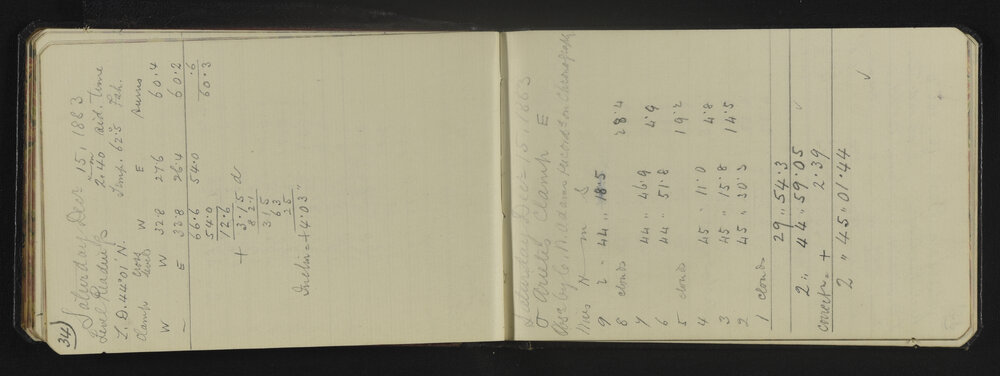 34
Saturday Decr 15, 1883
Level Readings 2h 40m Sid. Time
Z.D. 44°01' N. Temp. 62°.5 Fah.
Clamp Cross Levels W E Sums
W W 32.8 27.6 60.4
" E 32.8 26.4 60.2
66.6 54.0 .6
54.0 60.3
12.6
+ 3.15 d
8 2.1
315
63
25
Inclin = + 4.03"
Saturday Decr 15, 1883
σ Arietis Clamp E
Obs by C. record on Chronograph
Wires H m S
9 2 " 44 " 18.5
8 clouds 28.4
7 44 " 46.9 4.9
6 44 " 51.8
5 clouds 19.2
4 45 11.0
3 45 " 15.8 4.8
2 45 " 30.3 14.5
1 clouds
29 " 54.3
2 " 44 " 59.05 ✓
correctn = + 2.39
2 " 45 " 01.44 ✓